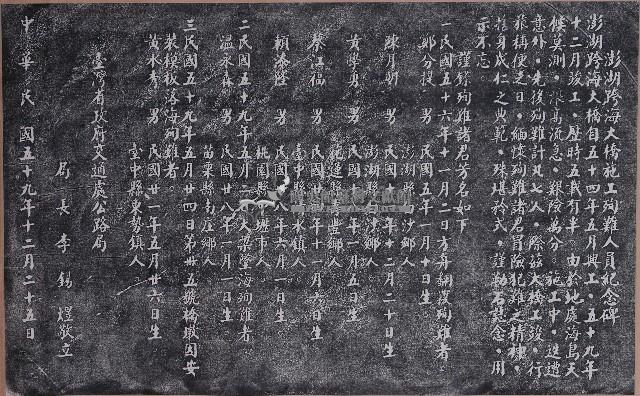 澎湖跨海大橋施工殉難人員紀念碑
澎湖跨海大橋自五十四年五月興工，五十九年
十二月竣工，歷時五載有半。由於地處海島天
候莫測，浪高流急，艱險萬分。施工中，迭遭
意外，先後殉難計有七人，際茲大橋工竣，行
旅稱便之日，緬懷殉難諸君冒險犯難之精神，
捨身成仁之典範，殊堪矜式，謹勒石誌念，用
示不忘。
謹錄殉難諸君芳名如下
一民國五十六年十一月二日方舟翻覆殉難者。
鄭分投 男 民國五年一月十日生
澎湖縣 沙鄉人
陳月明 男 民國十 年十二月二十日生
澎湖縣 鄉人
黃學勇 男 民國十 年一月五日生
花蓮縣 鄉人。
蔡江福 男 民國 年十一月六日生
臺中縣 水鎮人。
賴添隆 男 民國 年六月一日生
桃園縣中壢市人。
二民國五十九年五月 大梁墜海殉難者。
溫永森 男 民國廿八年一月一日生
苗栗縣南庄鄉人
三民國五十九年五月廿四日第卅五號橋墩因安
裝模板落海殉難者。
黃水秀 男 民國廿一年五月廿六日生
臺中縣東勢鎮人。
臺灣省政府交通處公路局
局長 李錫煜敬立
中華民國五十九年十二月二十五日